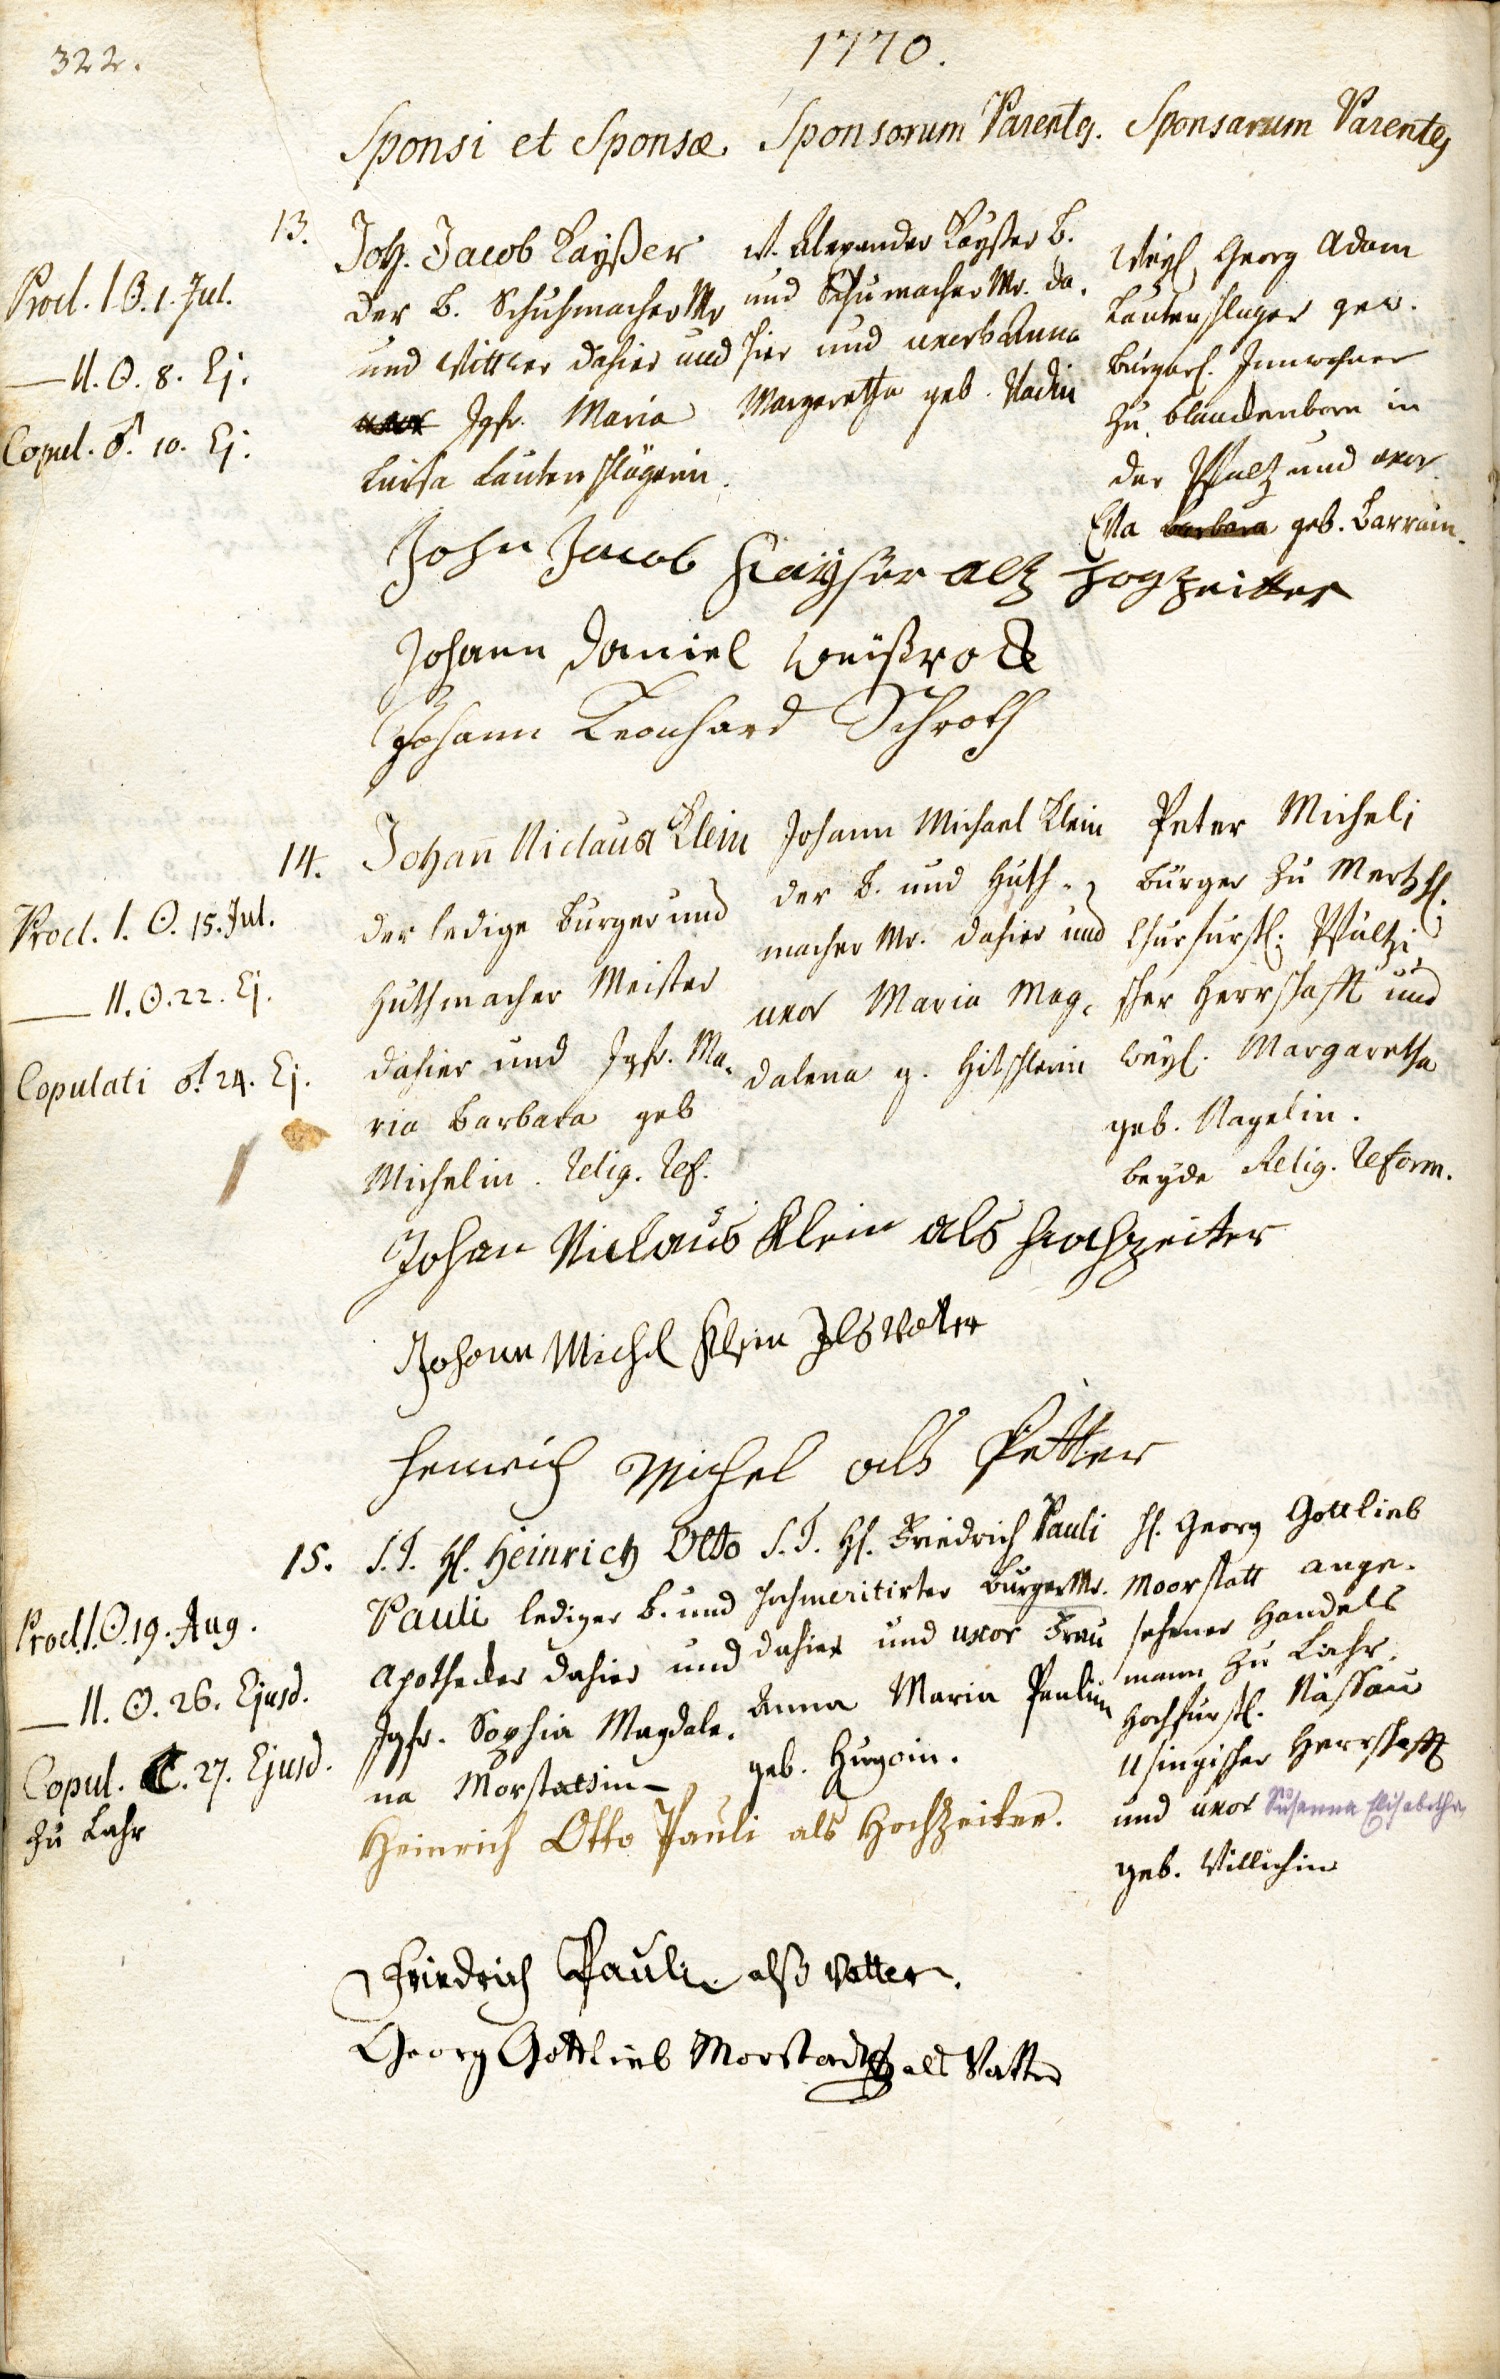 322.
1770.
Sponsi et Sponsæ. Sponsorum Parentes. Sponsarum Parentes
13.
Procl. I. ☉. 1. Jul.
— II. ☉. 8. Ej.
Copul. ♂. 10. Ej.
Joh. Jacob Kayßer
der B. Schuhmacher Mr
und Wittwer dahier und
Jgfr. Maria
Luisa Lautenschlägerin.
w. Alexander Kayßer B.
und Schumacher Mr. da-
hier und uxor Anna
Margaretha geb. Nadin
Weyl. Georg Adam
Lautenschlager gew.
burgerl. Innwohner
zu blanckenborn in
der Pfaltz und uxor
Eva barbara geb. Barrain.
John Jacob Kayser alz Hogzeitter
Johann Daniel Weißrock
Johann Leonhard Schroth
14.
Procl. I. ☉. 15. Jul.
— II. ☉. 22. Ej.
Copulati ♂. 24. Ej.
Johañ Niclaus Klein
der ledige Burger und
Huthmacher Meister
dahier und Jgfr. Ma-
ria Barbara geb
Michelin. Relig. Ref.
Johann Michael Klein
der B. und Huth-
macher Mr. dahier und
uxor Maria Mag-
dalena g. Hitschlerin
Peter Micheli
Bürger zu Mertzh.
Churfürstl. Pfältzi
scher Herrschafft und
weyl. Margaretha
geb. Nagelin.
beyde Relig. Reform.
Johan Niclaus Klein als Hochzeiter
Johann Michel Klein Als Vatter
Henrich Michel als Petter
15.
Procl. I. ☉. 19. Aug.
— II. ☉. 26. Ejusd.
Copul. ☾. 27. Ejusd.
zu Lahr
S. T. H. Heinrich Otto
Pauli lediger B. und
Apothecker dahier und
Jgfr. Sophia Magdale-
na Morstattin
S. T. H. Friedrich Pauli
hochmeritirter BurgerMr.
dahier und uxor Frau
Anna Maria Paulin
geb. Hugoin.
H. Georg Gottlieb
Moorstatt ange-
sehener Handels
mann zu Lahr.
Hochfürstl. Nassau
Usingischer Herrschafft
und uxor Susanna Elisabetha
geb. Villichin
Heinrich Otto Pauli als Hochzeiter.
Friedrich Pauli alß Vatter.
Georg Gottlieb Morstadt als Vatter